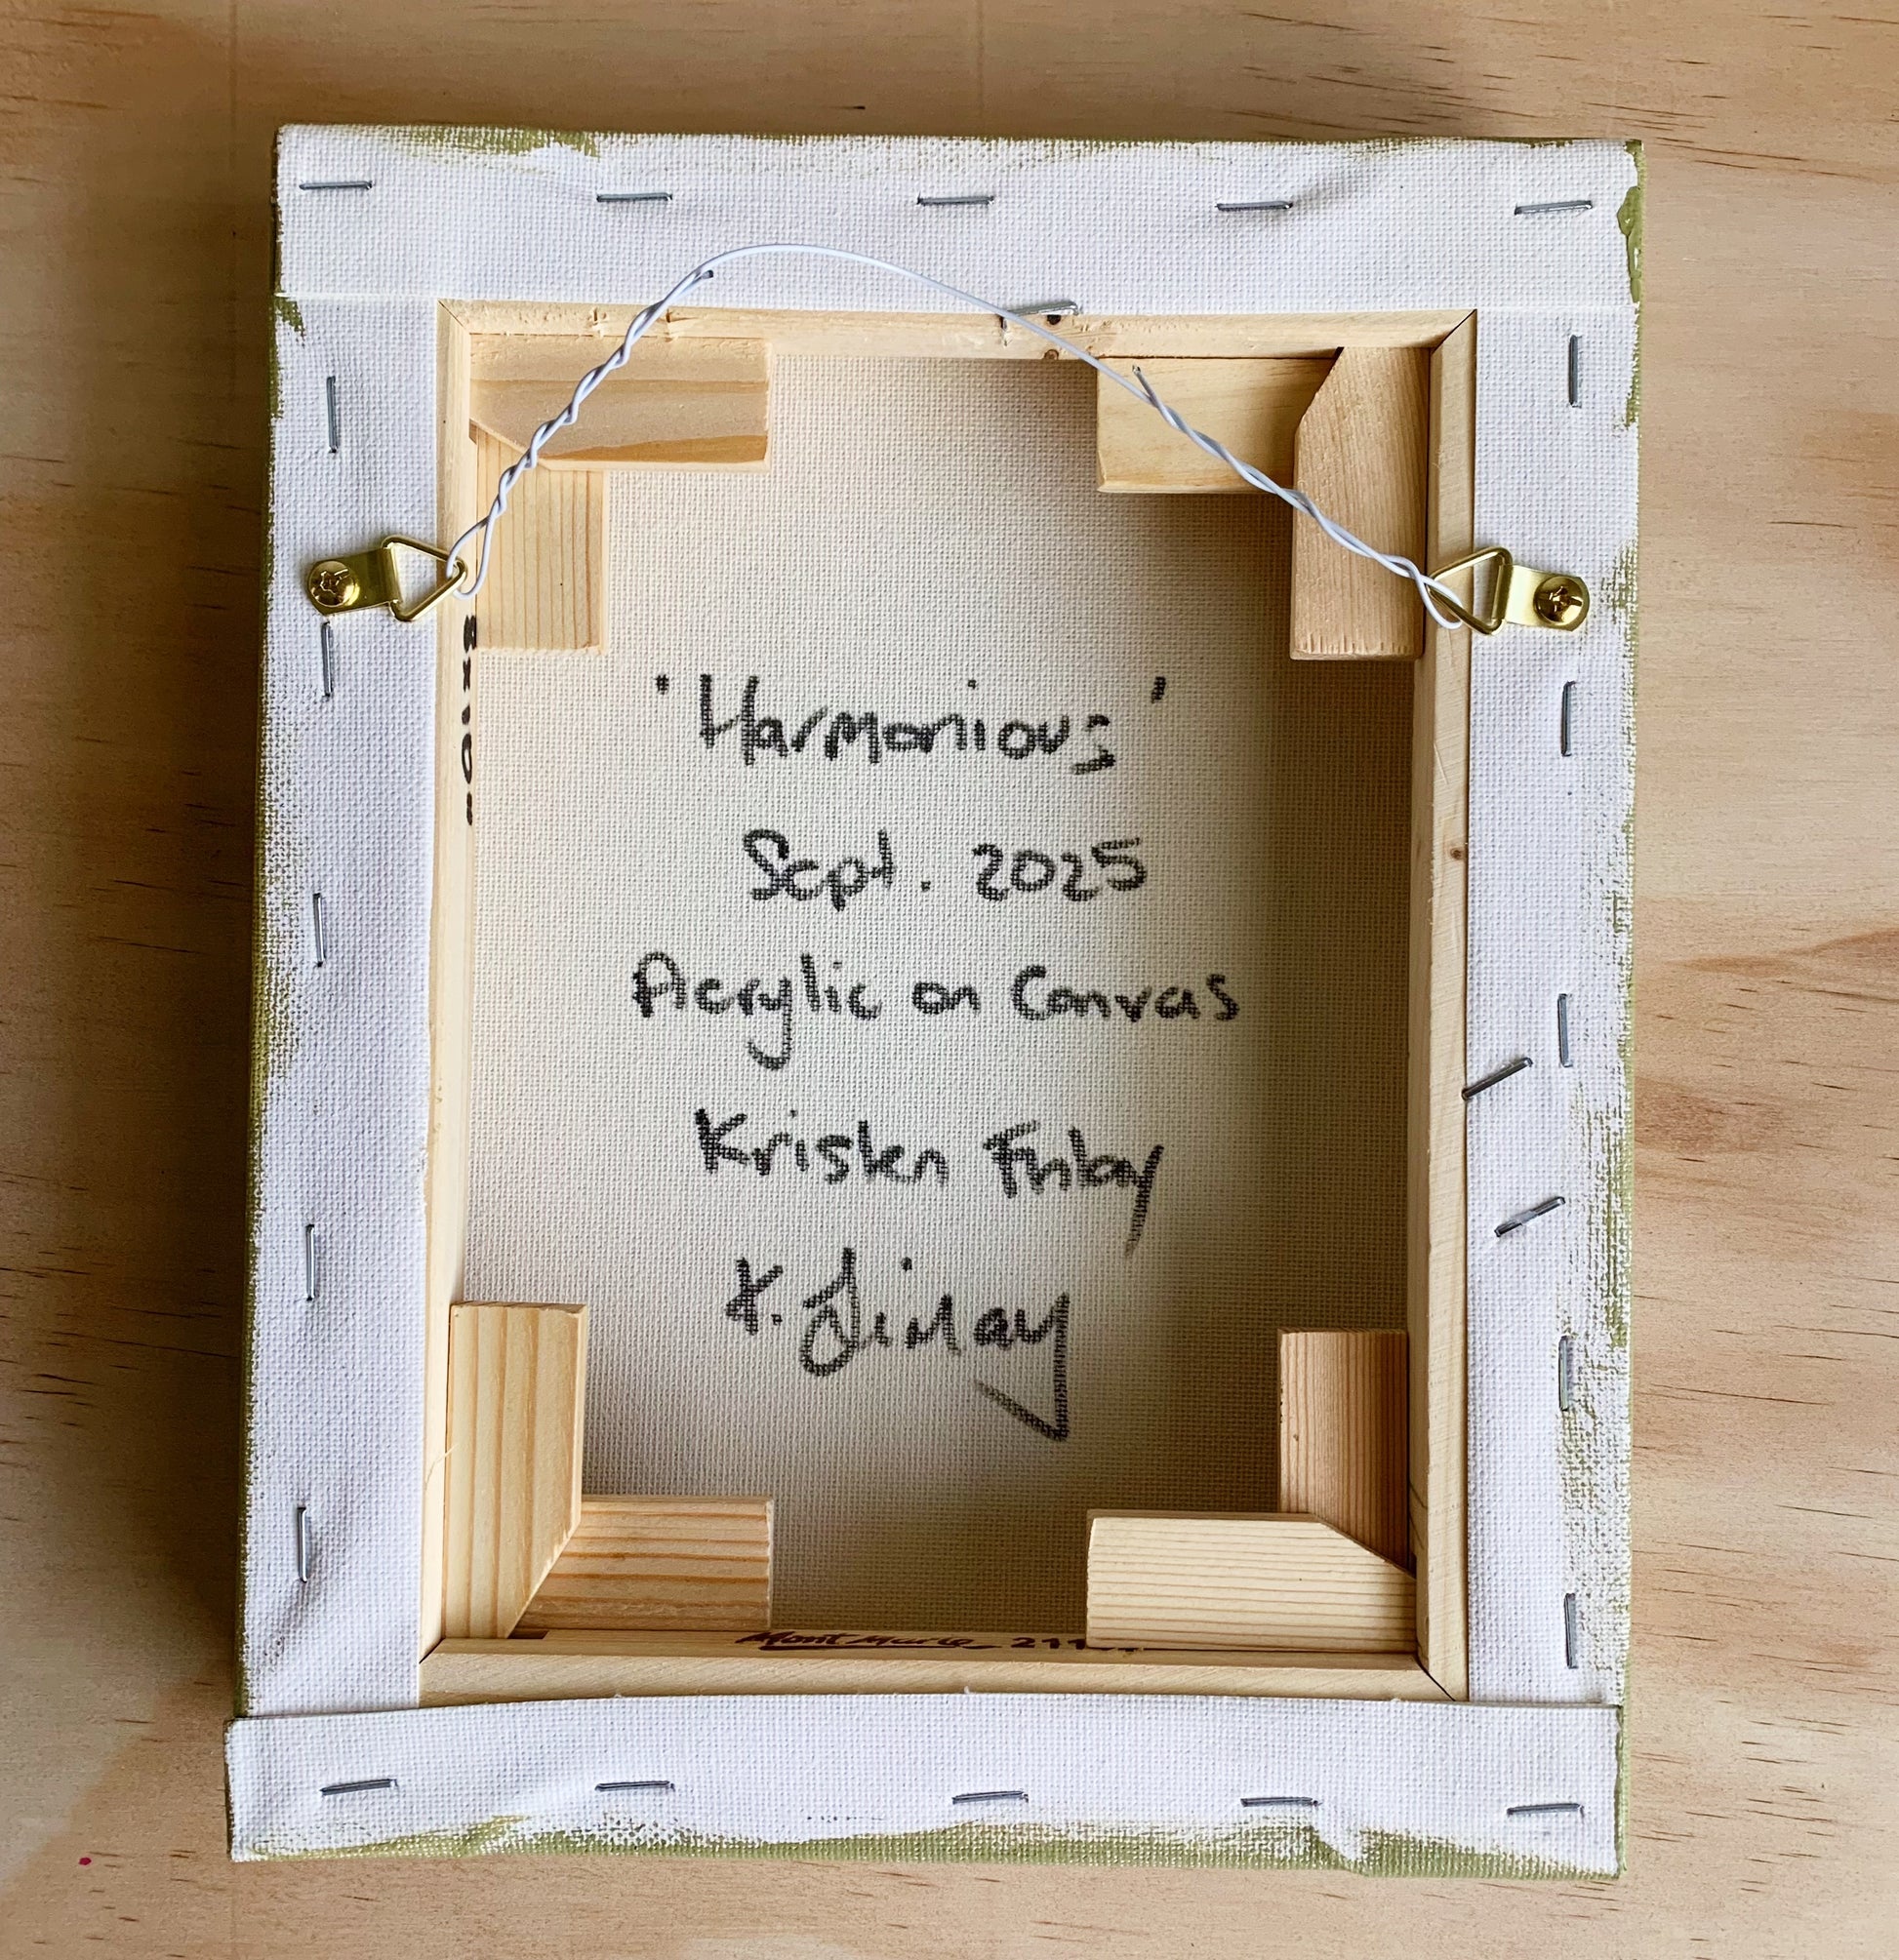 'Harmonious'
Sept. 2025
Acrylic on Canvas
Kristen Finlay
K. Finlay
8x10"
Mont Marte